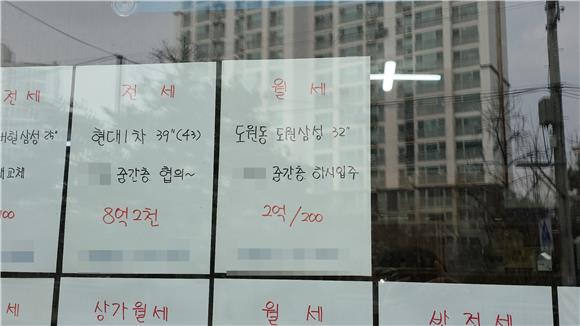 전세
대현삼성 25"
100
전세
현대1차 39"(43)
중간층 협의~
8억2천
월세
도원동 도원삼성 32"
중간층 하시입주
2억/200
세
상가월세
월세
반전세